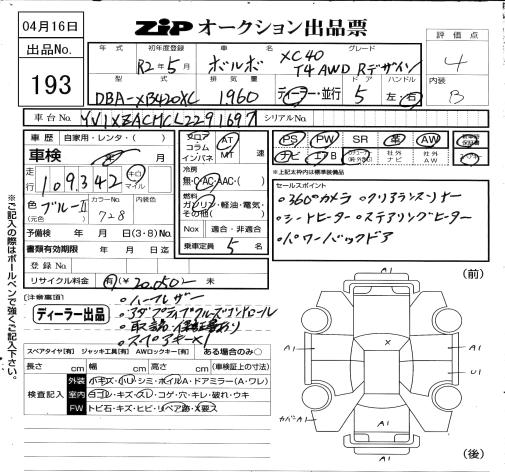 04月16日
ZIP オークション出品票
出品No.
193
年式
初年度登録
R2年5月
車名
ボルボ
グレード
XC40
T4 AWD Rデザイン
評価点
4
型式
DBA-XB420XC
排気量
1960
ディーラー・並行
ドア
5
ハンドル
左・右
内装
B
車台No.
シリアルNo.
車歴
自家用・レンタ・( )
車検
年 月
走行
109,342
キロ
マイル
色
(元色)
ブルーII
カラーNo.
728
内装色
予備検 年 月 日(3・8)No.
書類有効期限 年 月 日迄
登録No.
リサイクル料金
有(¥20,050- 未
フロア
コラム
インパネ
AT
MT
速
冷房
無・C・AC・AAC・( )
燃料
ガソリン・軽油・電気・
その他( )
Nox 適合・非適合
乗車定員 5 名
PS
PW
SR
革
AW
ナビ
エアB
社外
ナビ
社外
AW
※上記太枠内は標準装備品
セールスポイント
・360°カメラ ・クリアランスソナー
・シートヒーター ・ステアリングヒーター
・パワーバックドア
[注意事項]
ディーラー出品
・ハーフレザー
・アダプティブクルーズコントロール
・取説・保証書有り
・スペアキー×1
スペアタイヤ[有] ジャッキ工具[有] AWロックキー[有] ある場合のみ○
長さ cm 幅 cm 高さ cm (車検証上の寸法)
検査記入
外装
小キズ・凹・シミ・ホイルA・ドアミラー(A・ワレ)
室内
白コゲ・キズ・スレ・コゲ・穴・キレ・破れ・ウキ
FW
トビ石・キズ・ヒビ・リペア跡・X要ス
※ご記入の際はボールペンで強くご記入下さい。
(前)
A1
X
A1
A1
U1
カバーA1
A1
(後)